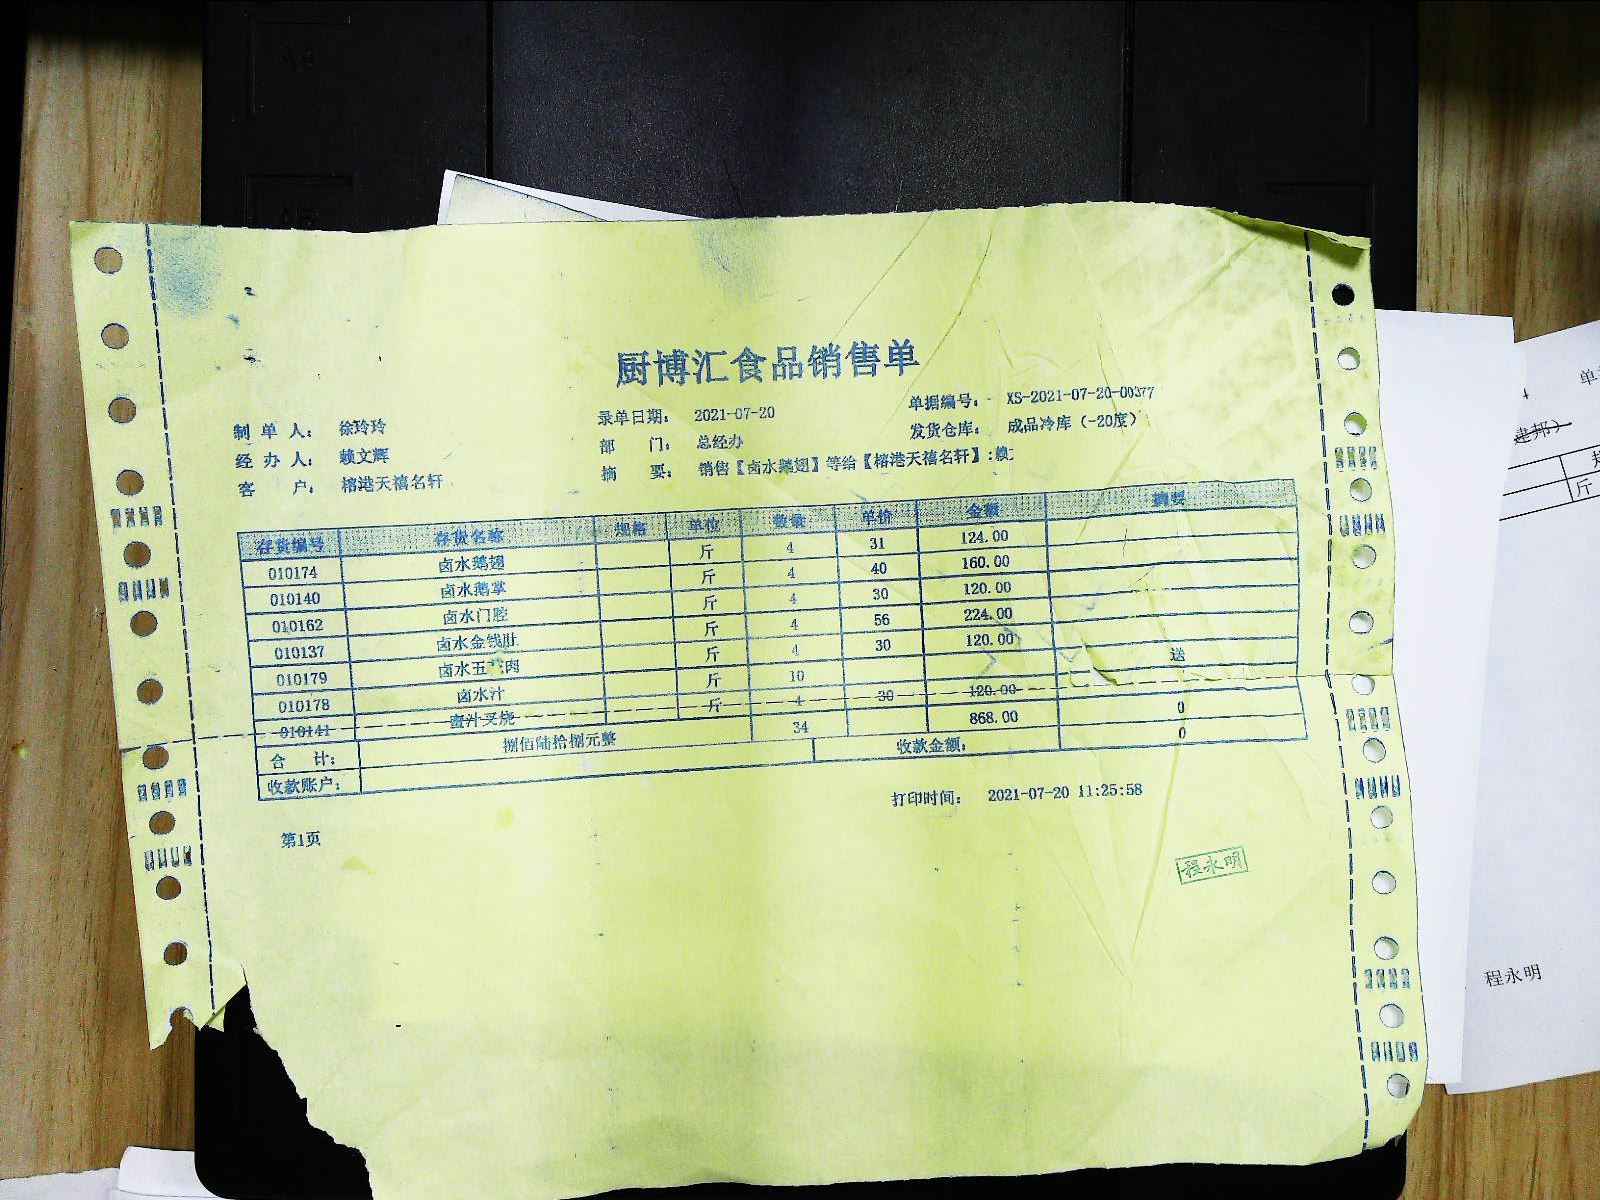 厨博汇食品销售单
制单人: 徐玲玲 录单日期: 2021-07-20 单据编号: XS-2021-07-20-00377
经办人: 赖文辉 部门: 总经办 发货仓库: 成品冷库(-20度)
客户: 榕港天禧名轩 摘要: 销售【卤水鹅翅】等给【榕港天禧名轩】:赖
存货编号 存货名称 规格 单位 数量 单价 金额 摘要
010174 卤水鹅翅 斤 4 31 124.00
010140 卤水鹅掌 斤 4 40 160.00
010162 卤水门腔 斤 4 30 120.00
010137 卤水金钱肚 斤 4 56 224.00
010179 卤水五 肉 斤 4 30 120.00
010178 卤水汁 斤 10 送
010141 蜜汁叉烧 斤 4 30 120.00 0
合计: 捌佰陆拾捌元整 34 868.00 0
收款账户: 收款金额:
打印时间: 2021-07-20 11:25:58
第1页
程永明
单
建邦)
斤
程永明